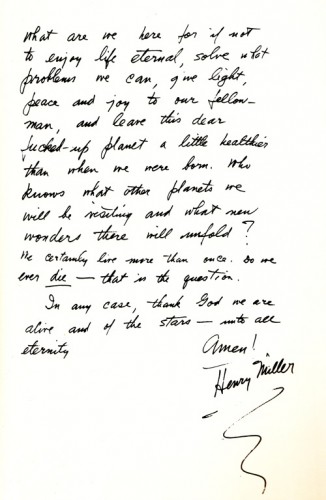 what are we here for if not
to enjoy life eternal, solve what
problems we can, give light,
peace and joy to our fellow-
man, and leave this dear
fucked-up planet a little healthier
than when we were born. Who
knows what other planets we
will be visiting and what new
wonders there will unfold?
We certainly live more than once. Do we
ever die — that is the question.
In any case, thank God we are
alive and of the stars — unto all
eternity
Amen!
Henry Miller